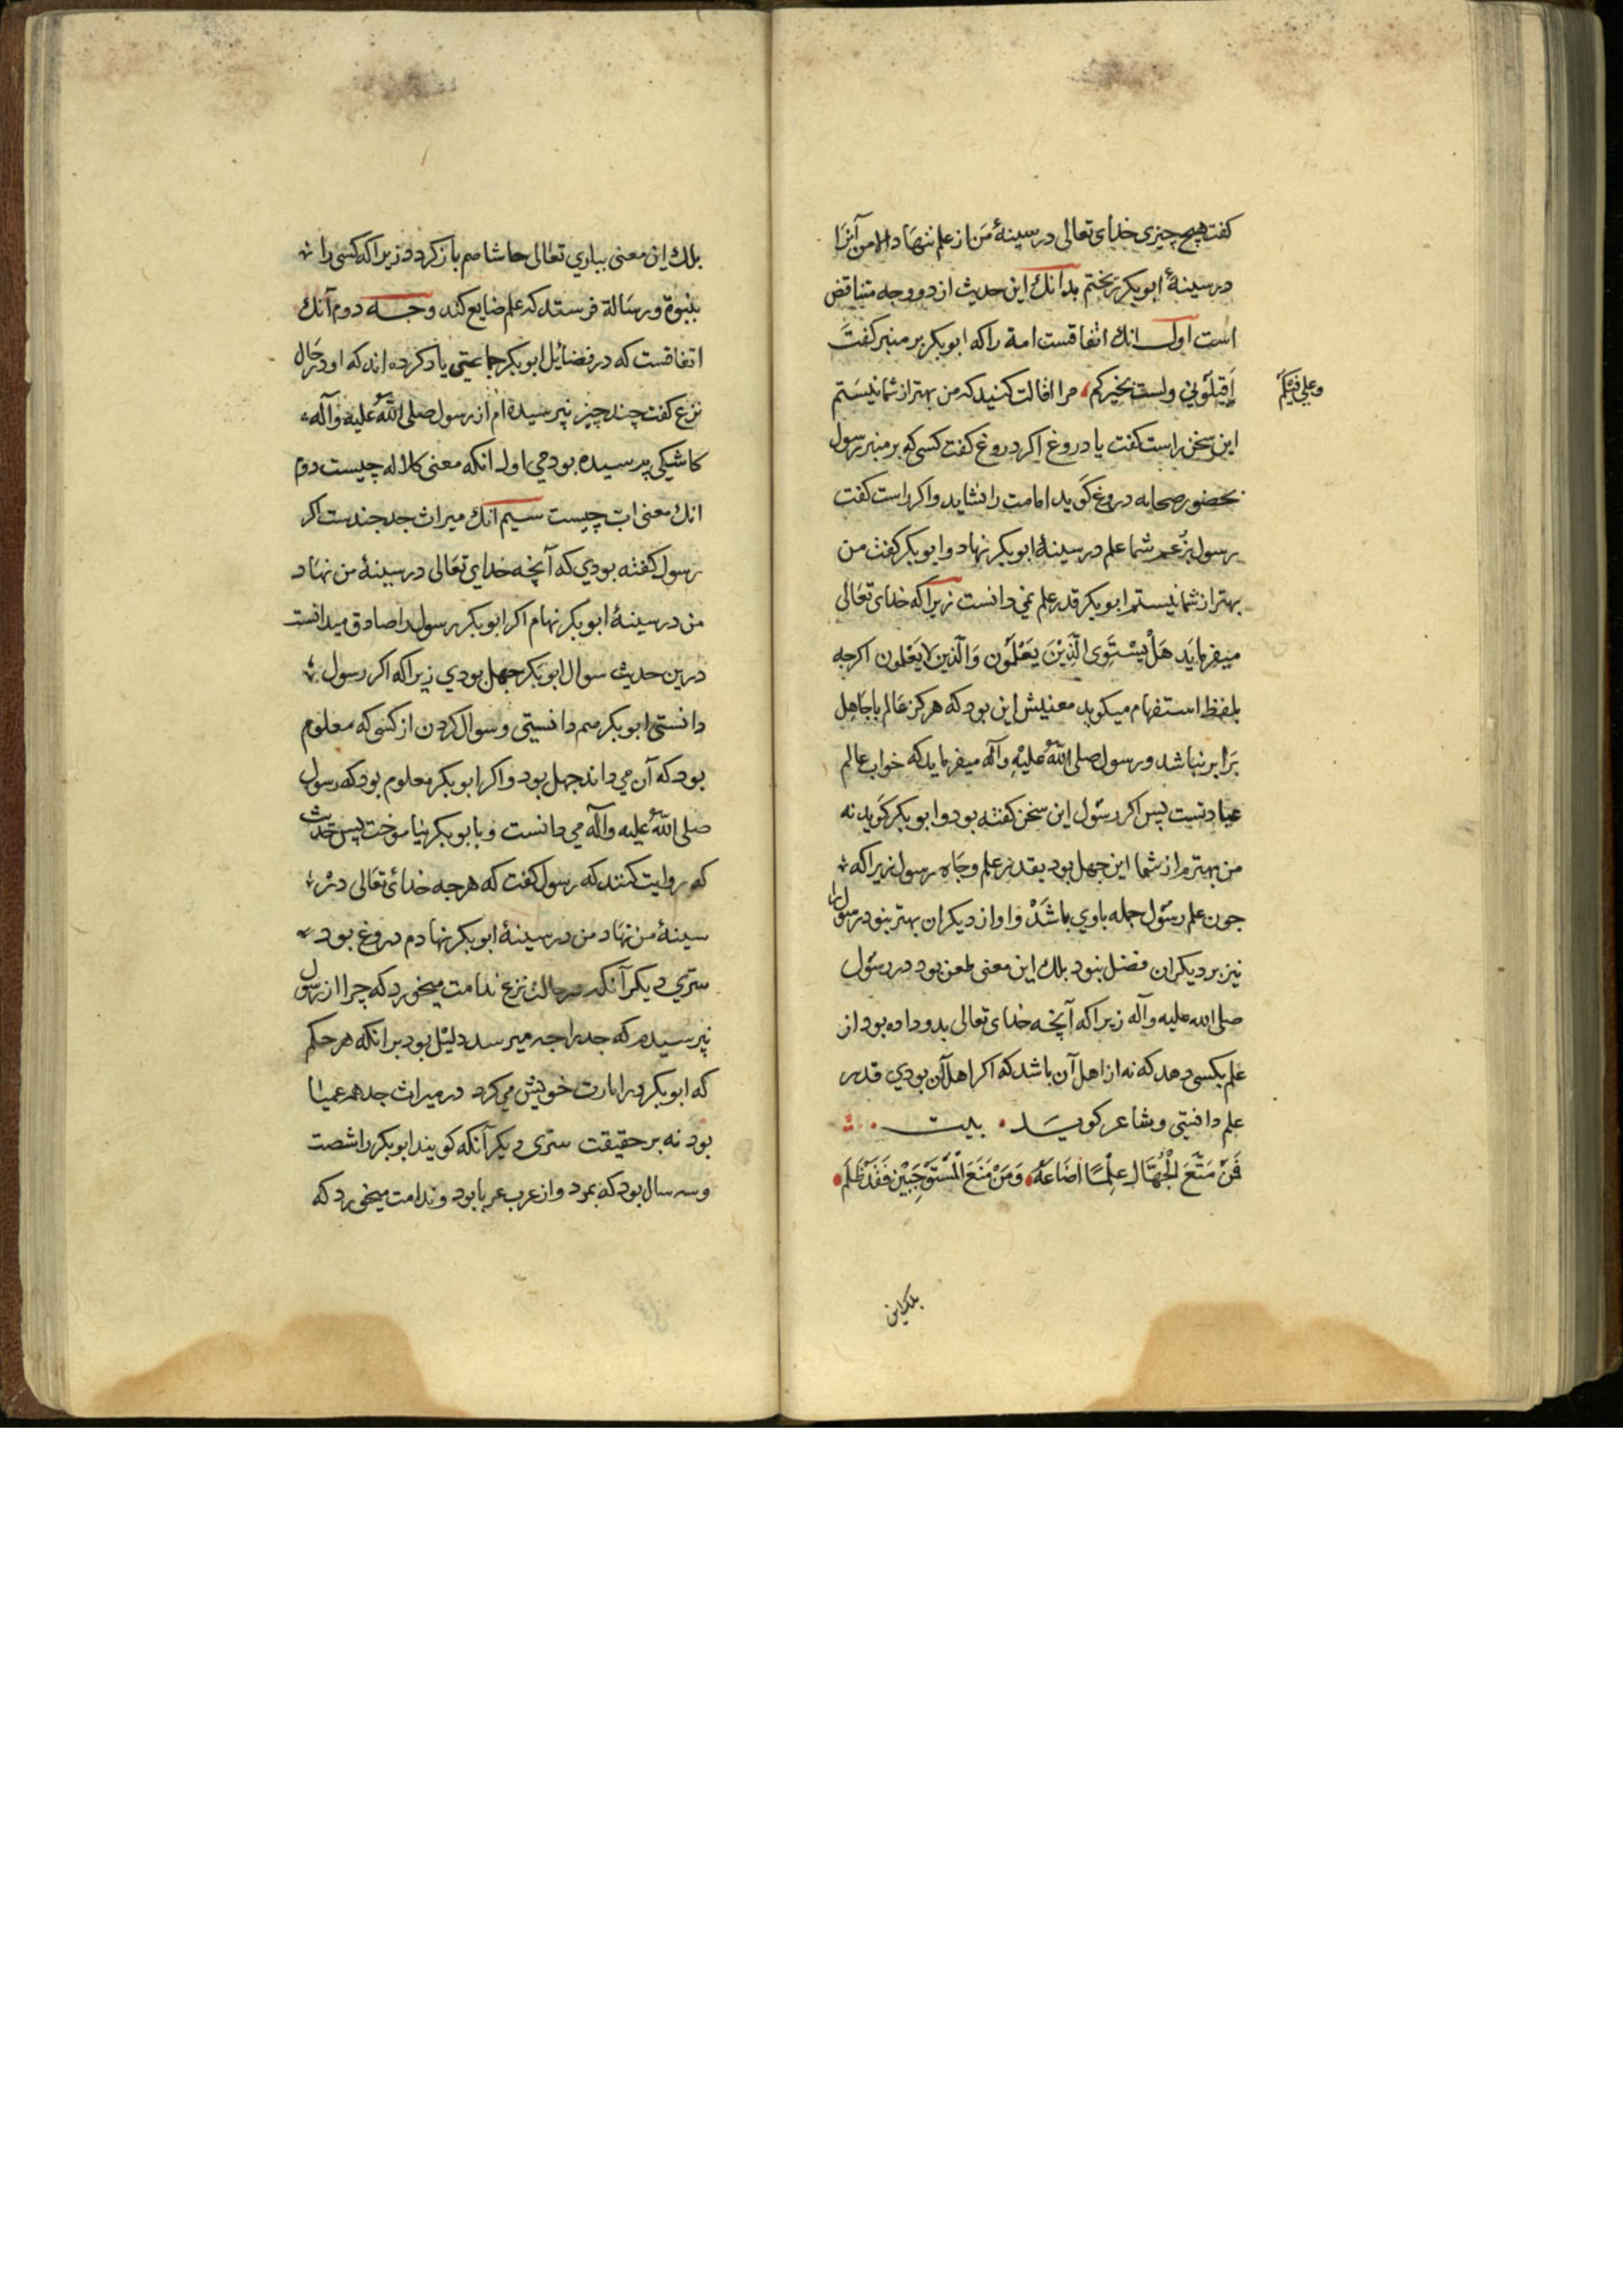 كفت هيچ چيزى خداى تعالى در سينۀ من از علم ننهاد الا من آنرا
در سينۀ ابوبكر ريختم بدانك اين حديث از دو وجه متناقض
است اول انك اتفاقست امة را كه ابوبكر بر منبر كفت
اَقيلُوني ولست بخيركم مرا اقالت كنيد كه من بهتر از شما نيستم
وعلي فيكم
اين سخن راست كفت يا دروغ اكر دروغ كفت كسى كو بر منبر رسول
بحضور صحابه دروغ كويد امامت را نشايد واكر راست كفت
رسول بزعم شما علم در سينۀ ابوبكر نهاد وابوبكر كفت من
بهتر از شما نيستم ابوبكر قدر علم نمى دانست زيرا كه خداى تعالى
ميفرمايد هَلْ يَسْتَوِى الَّذِيْنَ يَعْلَمُون وَالَّذين لا يَعْلمون اكرچه
بلفظ استفهام ميكويد معنيش اين بود كه هركز عالم با جاهل
برابر نباشد ورسول صلى الله عليه وآله ميفرمايد كه خواب عالم
عبادتست پس اكر رسول اين سخن كفته بود وابوبكر كويد نه
من بهترم از شما اين جهل بود بقدر علم وجاه رسول زيرا كه
جون علم رسول جمله باوي باشَدْ وَاو از ديكران بهتر نبود رسول را
نيز بر ديكران فضل نبود بلك اين معنى طعن بود در رسول
صلى الله عليه وآله زيرا كه آنچه خداى تعالى بدو داده بود از
علم بكسى دهد كه نه از اهل آن باشد كه اكر اهل آن بودي قدر
علم دانستى وشاعر كويد بيت
فَمَنْ مَنَّحَ الْجُهَّالَ عِلْمًا اَضَاعَهُ وَمَنْ مَنَعَ الْمُسْتَوْجِبِيْن فَقَدْ ظَلَم
بلك اين
بلك اين معنى بباري تعالى حاشا هم باز كردد زيرا كه كسى را
بنبوة ورسالة فرستد كه علم ضايع كند وجه دوم آنك
اتفاقست كه در فضائل ابوبكر جماعتى ياد كرده اند كه او در حال
نزع كفت چند چيز نپرسيده ام از رسول صلى الله عليه وآله
كاشيكى پرسيده بودمي اول انكه معنى كلاله چيست دوم
انك معنى ابّ چيست سيم انك ميراث جد چندست اكر
رسول كفته بودي كه آنچه خداي تعالى در سينۀ من نهاد
من در سينۀ ابوبكر نهام اكر ابوبكر رسول را صادق ميدانست
درين حديث سوال ابوبكر جهل بودي زيرا كه اكر رسول
دانستى ابوبكر هم دانستى وسوال كردن از كسى كه معلوم
بود كه آن مي داند جهل بود واكر ابوبكر معلوم بود كه رسول
صلى الله عليه وآله مي دانست وبا بوبكر نياموخت پس حديث
كه روايت كنند كه رسول كفت كه هرچه خداى تعالى در
سينۀ من نهاد من در سينۀ ابوبكر نهادم دروغ بود
سترى ديكر آنكه در حالت نزع ندامت ميخورد كه چرا از رسول
نپرسيدم كه جد را چه ميرسد دليل بود بر انكه هر حكم
كه ابوبكر در امارت خويش مي كرد در ميراث جد هم عميا
بود نه بر حقيقت سترى ديكر آنكه كويند ابوبكر را شصت
وسه سال بود كه بمرد واز عرب عربا بود وندامت ميخورد كه